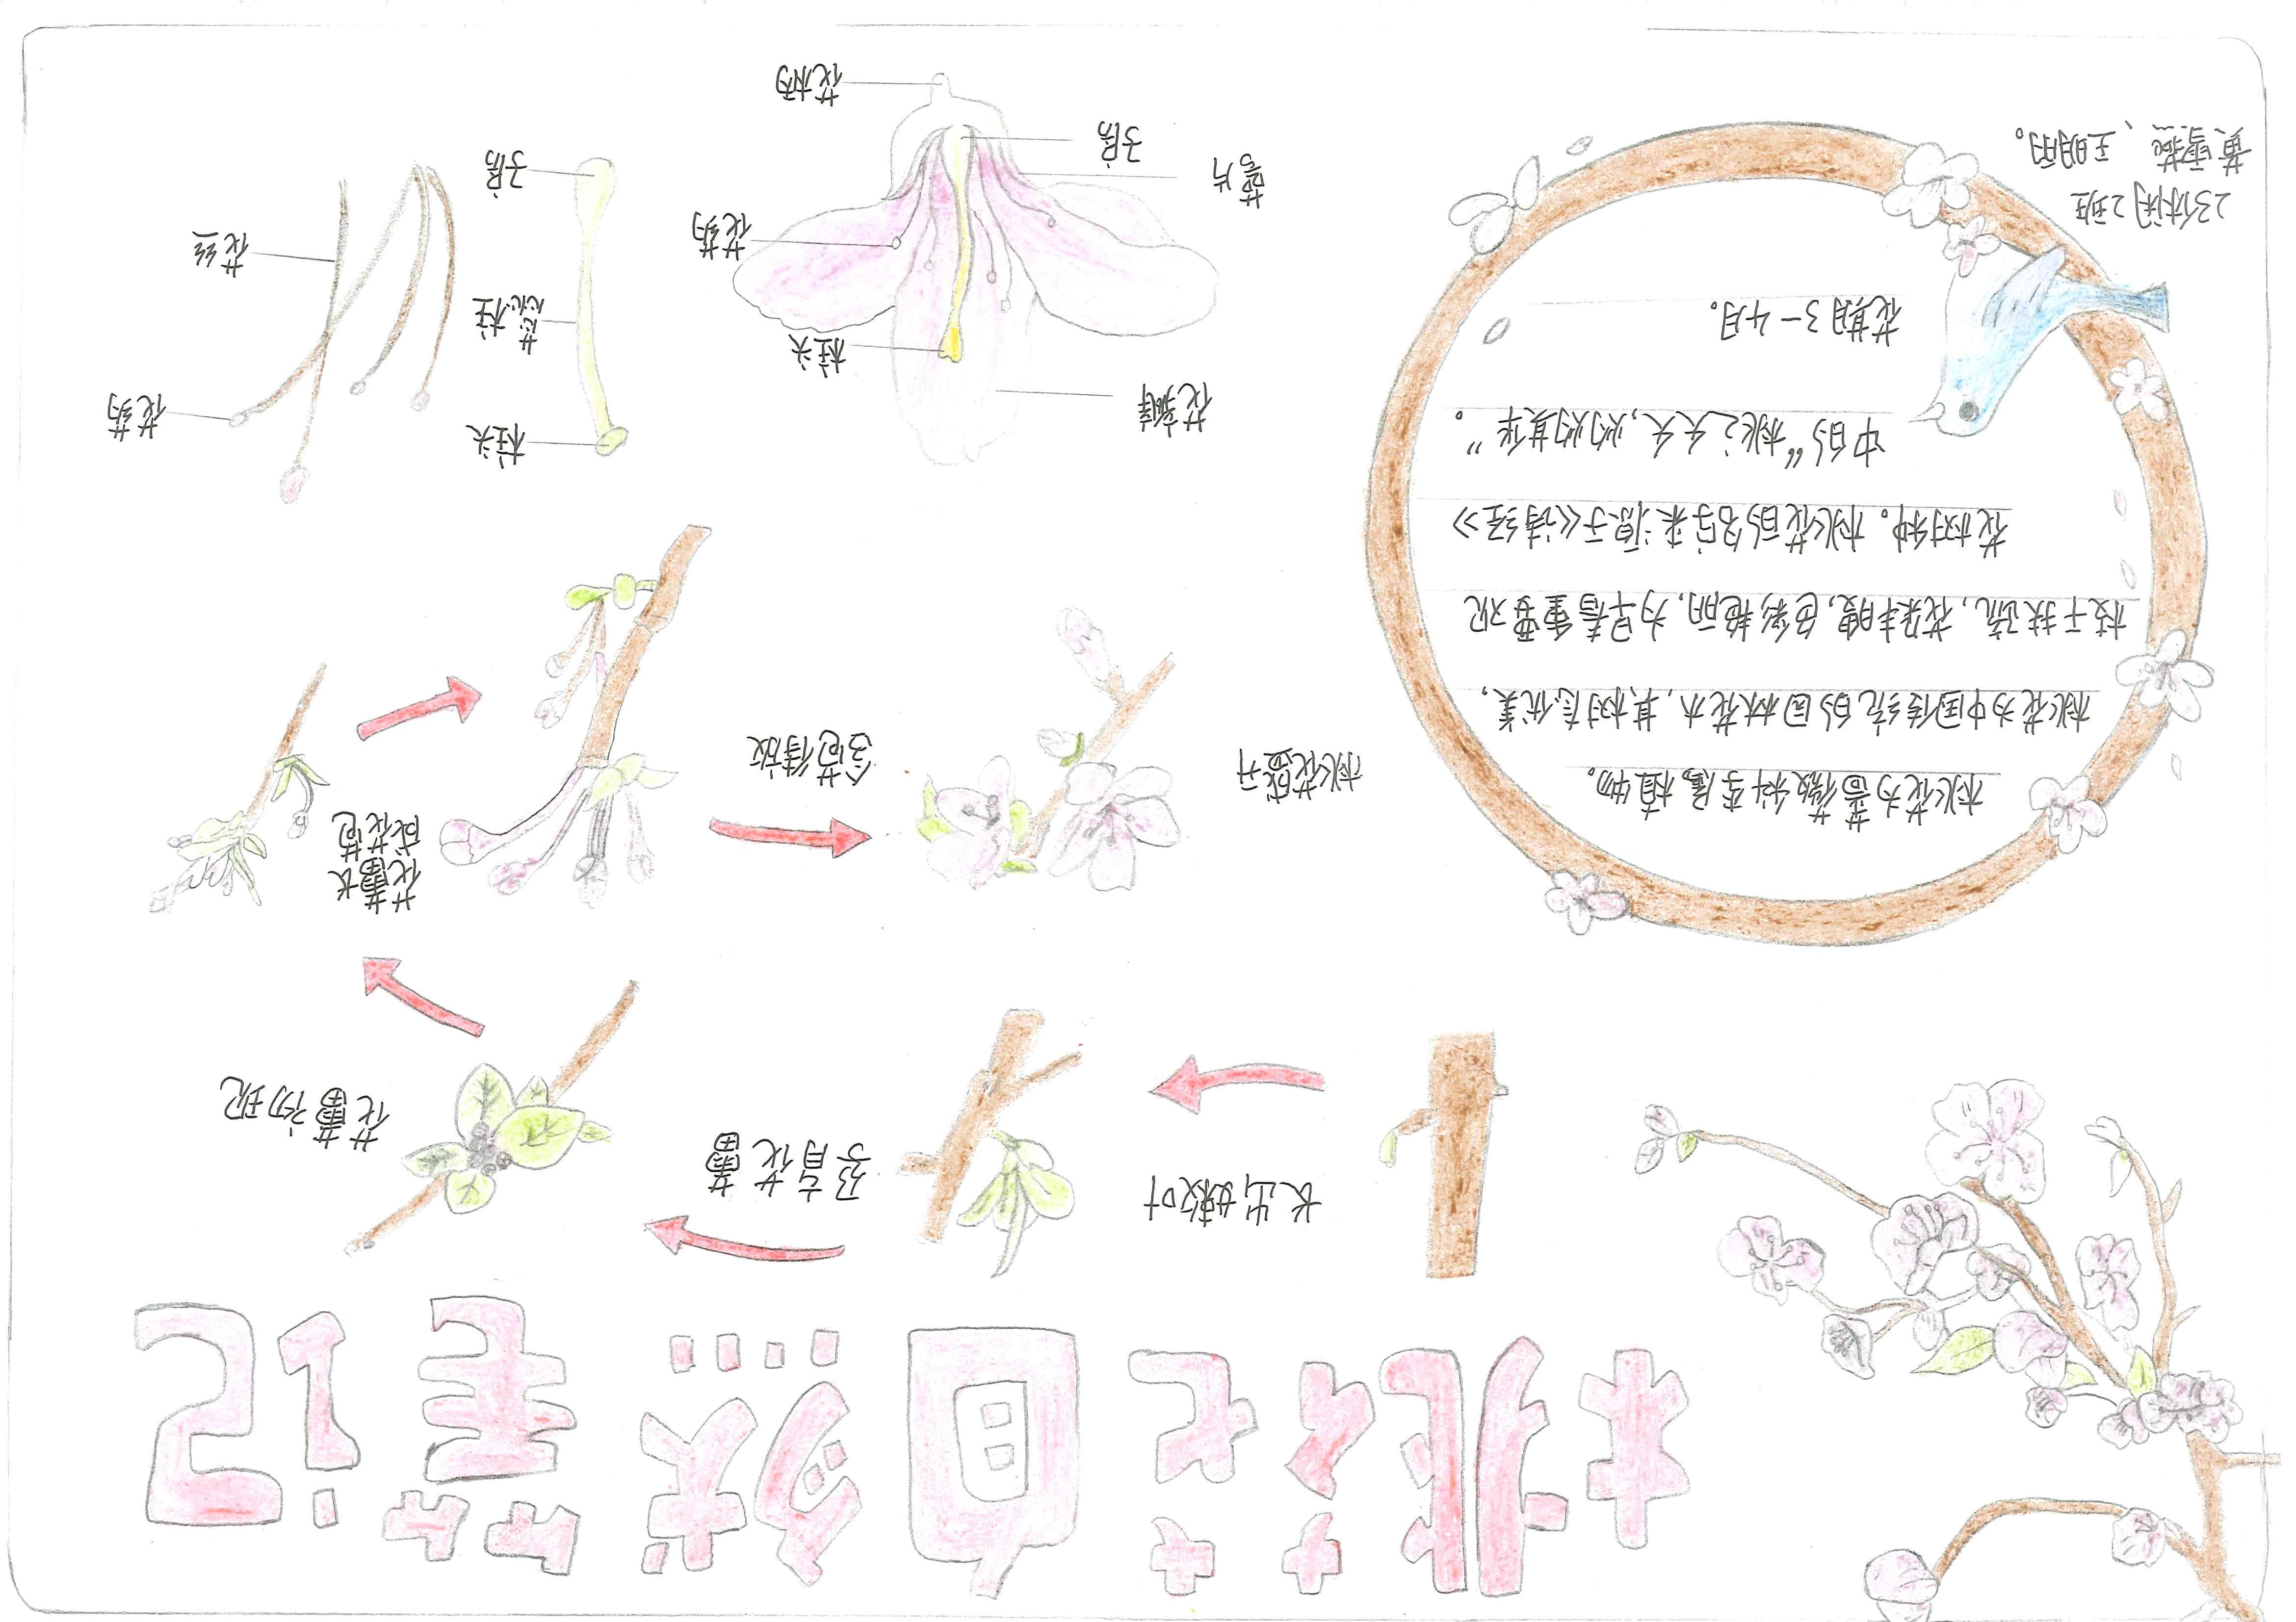 桃花自然笔记
长出嫩叶
孕育花蕾
花蕾初现
花蕾长
成花苞
含苞待放
桃花盛开
桃花为蔷薇科李属植物。
桃花为中国传统的园林花木，其树态优美，
枝干扶疏，花朵丰腴，色彩艳丽，为早春重要观
花树种。桃花的名字来源于《诗经》
中的“桃之夭夭，灼灼其华”。
花期3-4月。
花瓣
柱头
花药
萼片
子房
花柄
柱头
花柱
子房
花药
花丝
23休闲2班
黄雪燕、王明丽。